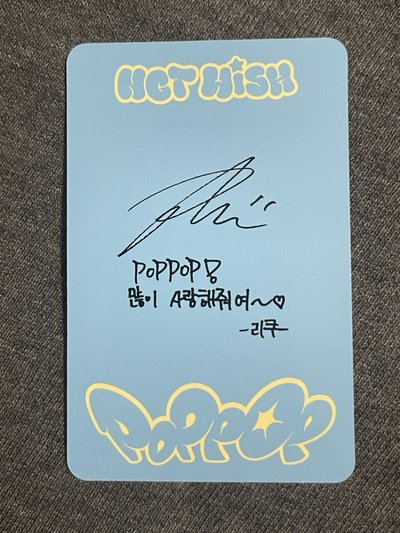 NCT WISH
POPPOP!
많이 사랑해줘여~♡
-리쿠
POPPOP